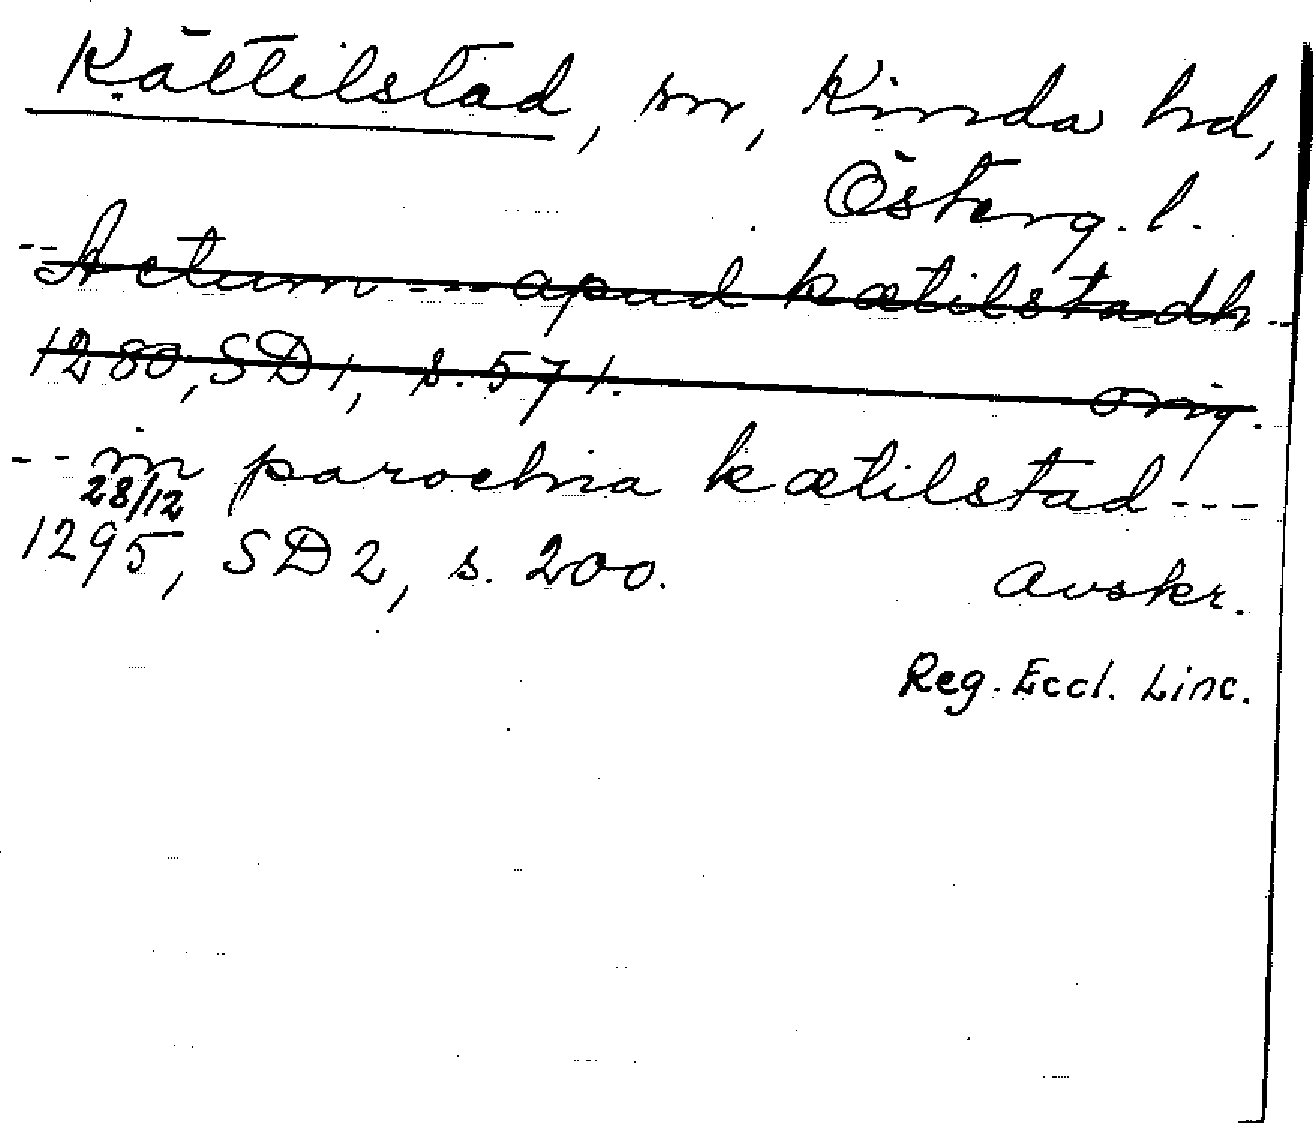 Kättilstad, sn, Kinda hd,
Österg. l.
-- Actum --- apud kætilstadh --
1280, SD 1, s. 571. orig.
-- in parochia kætilstad ---
28/12
1295, SD 2, s. 200. avskr.
Reg. Eccl. Linc.